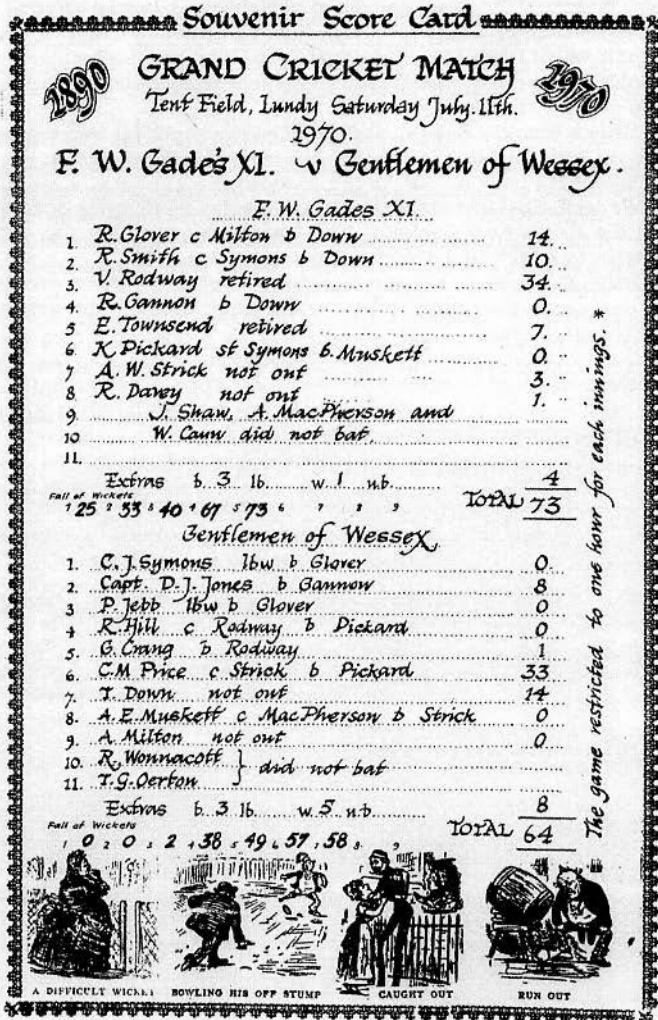 Souvenir Score Card
1890
1970
GRAND CRICKET MATCH
Tent Field, Lundy Saturday July. 11th.
1970.
F. W. Gade's XI. v Gentlemen of Wessex.
F. W. Gades XI.
1. R. Glover c Milton b Down 14.
2. R. Smith c Symons b Down 10.
3. V. Rodway retired 34.
4. R. Gannon b Down 0.
5. E. Townsend retired 7.
6 K. Pickard st Symons b. Muskett 0.
7 A. W. Strick not out 3.
8 R. Davey not out 1.
9 J. Shaw, A. MacPherson and
10 W. Caun did not bat.
11.
Extras b. 3 lb. w. 1 n.b. 4
Fall of Wickets
1 25 2 33 3 40 4 67 5 73 6 7 8 9 TOTAL 73
Gentlemen of Wessex
1. C. J. Symons lbw b Glover 0.
2. Capt. D. J. Jones b Gannow 8
3 P. Jebb lbw b Glover 0
4 R. Hill c Rodway b Pickard 0
5. G. Crang b Rodway 1
6. C.M Price c Strick b Pickard 33
7. T. Down not out 14
8. A. E. Muskett c MacPherson b Strick 0
9. A. Milton not out 0
10. R. Wonnacott } did not bat
11. T. G. Oerton
Extras b. 3 lb. w. 5 n.b. 8
Fall of Wickets
1 0 2 0 3 2 4 38 5 49 6 57 7 58 8 9 TOTAL 64
The game restricted to one hour for each innings. *
A DIFFICULT WICKET
BOWLING HIS OFF STUMP
CAUGHT OUT
RUN OUT